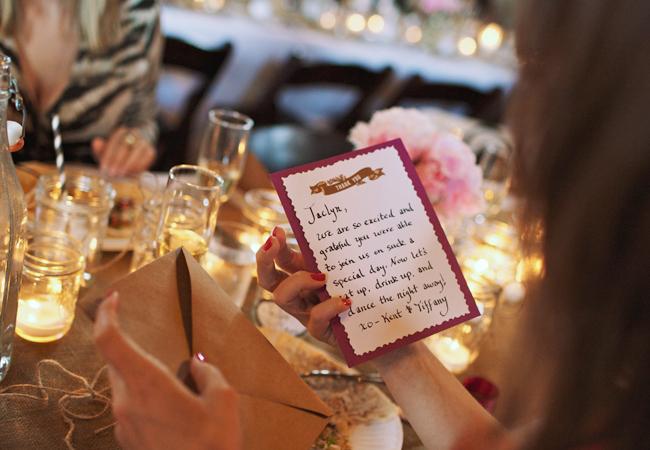 THANK YOU
Jaclyn,
we are so excited and
grateful you were able
to join us on such a
special day. Now let's
t up, drink up, and
dance the night away!
xo - Kent & Tiffany